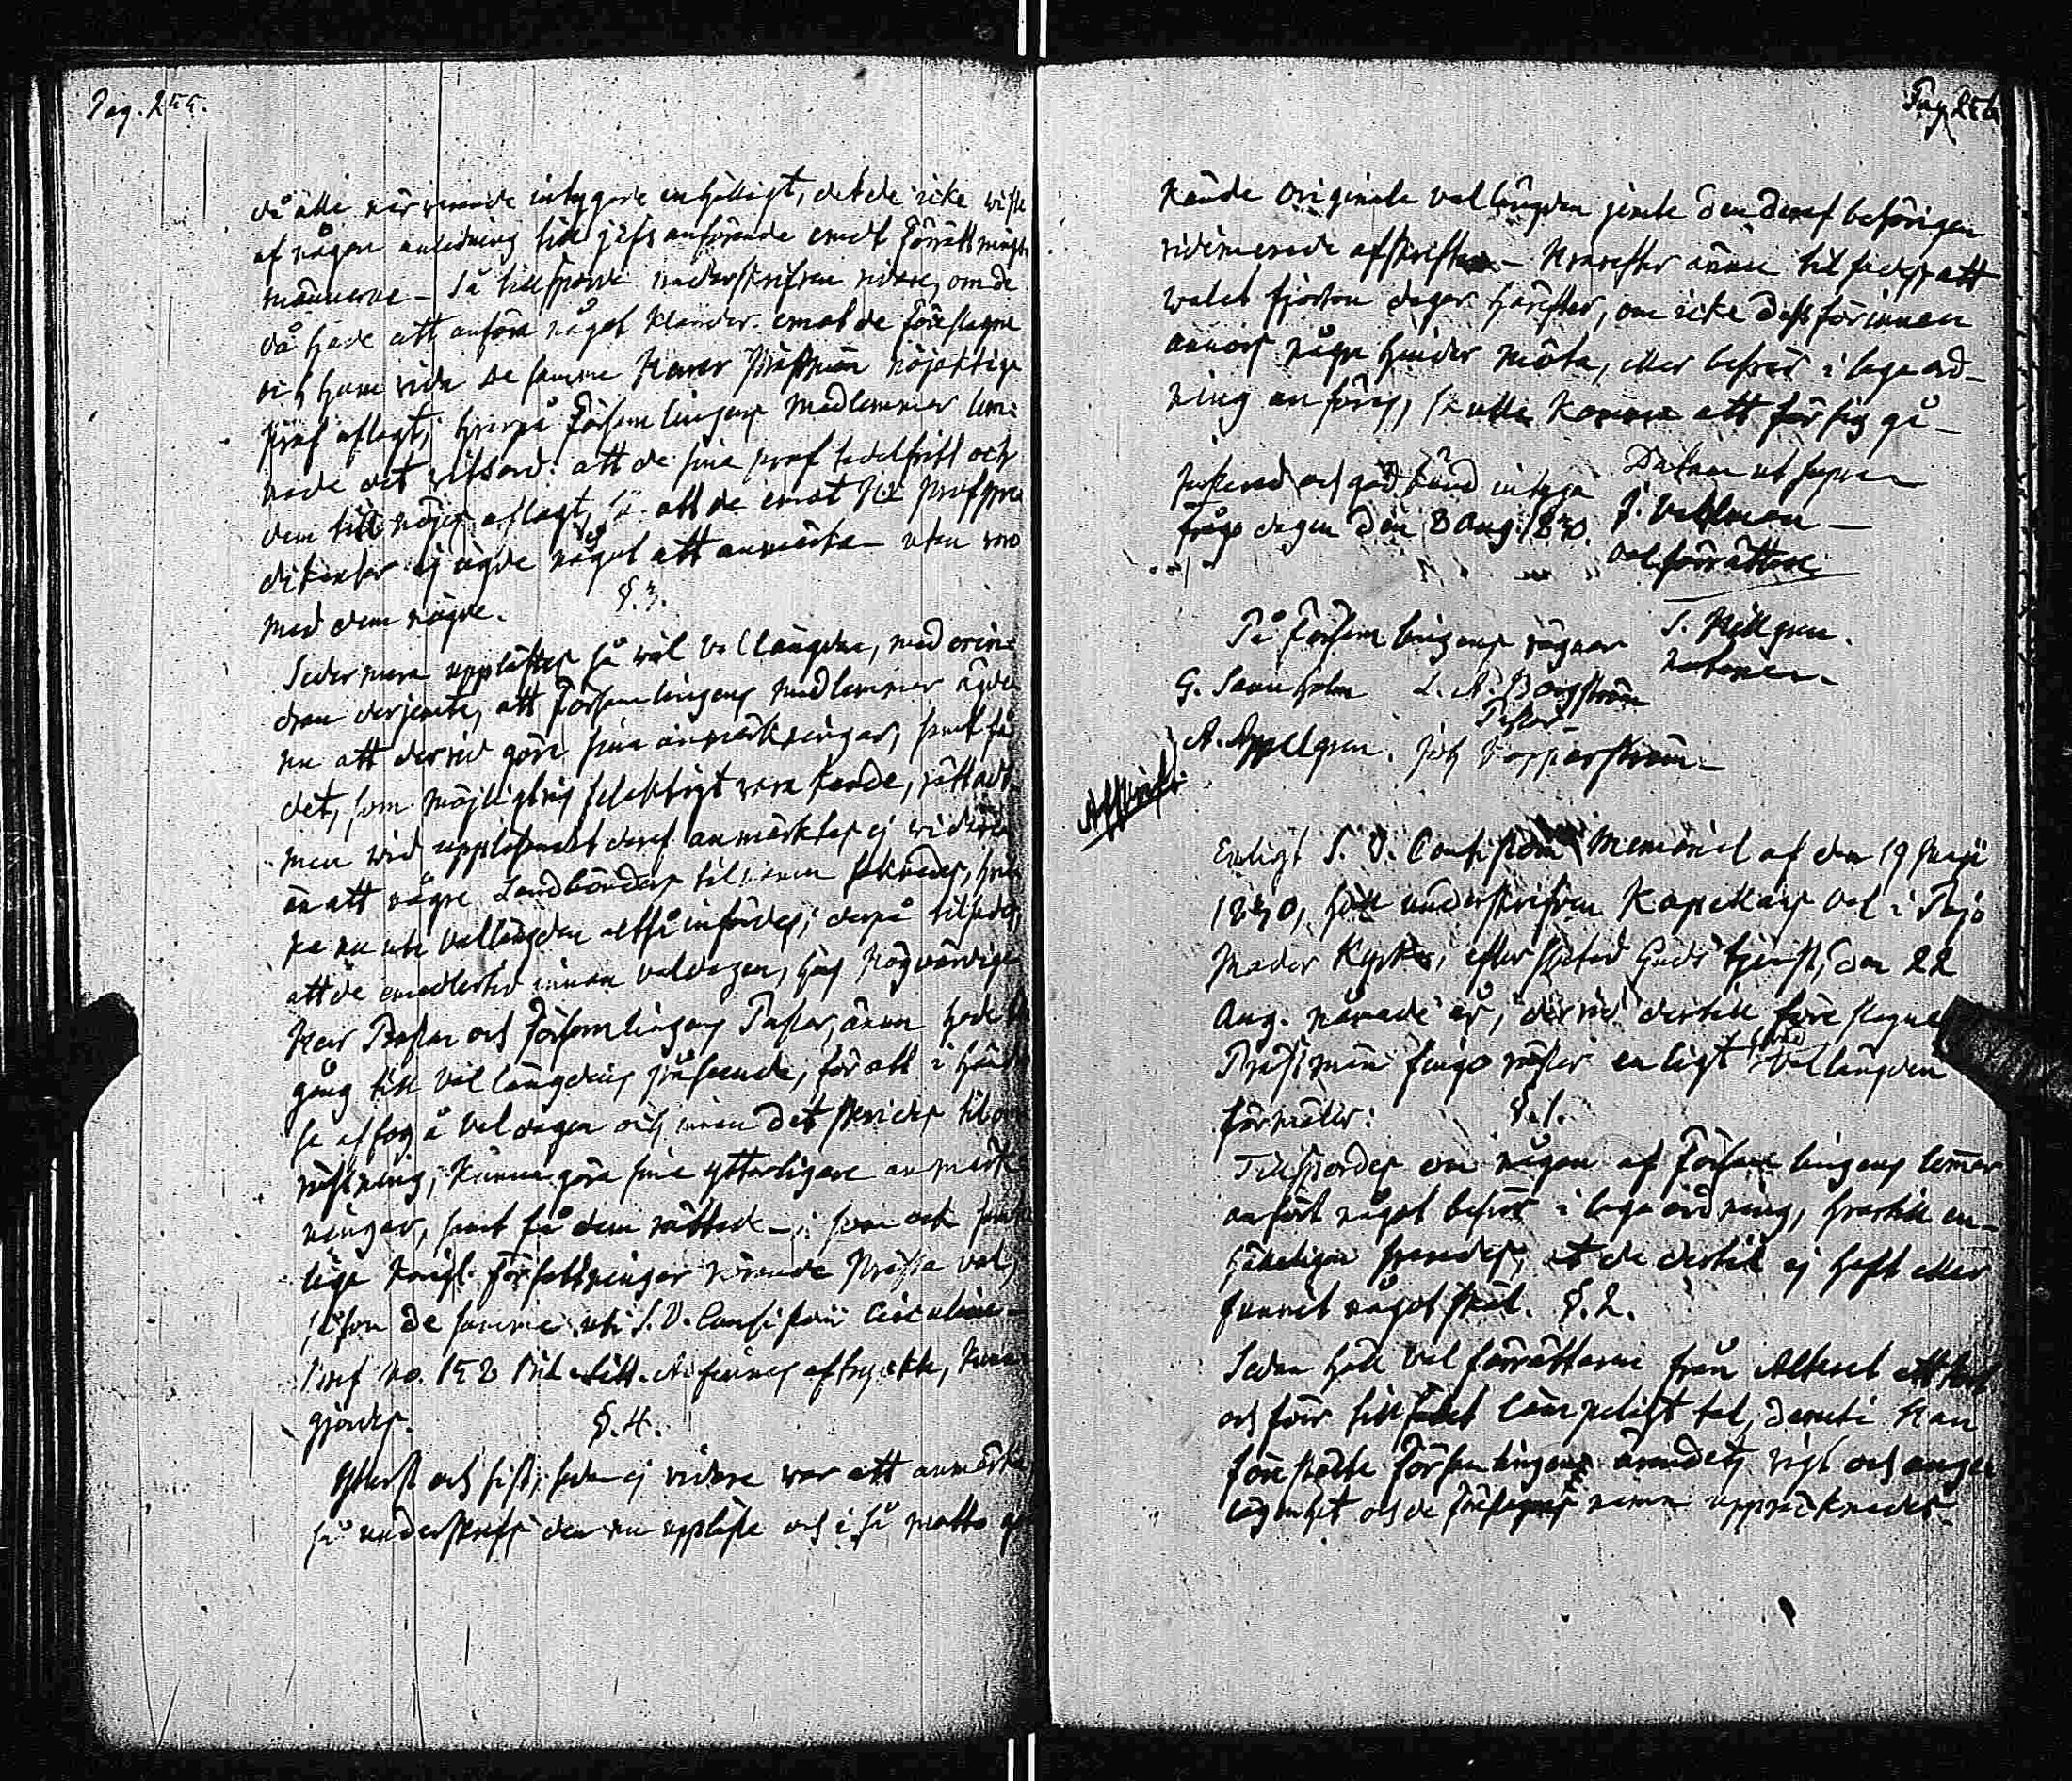 Pag. 255.
då alla närwarande intygade enhälligt, det de icke wiste
af någon anledning till jäfs anförande emot Förrättnings
männerne – Så tillsporde underskrifven widare, om de
då hade att anföra något klander emot de föreslagne
och huruvida de samme Herrar Prästmän nöjaktiga
prof aflagt; hvarpå Församlingens medlemmar lem-
nade det witsord: att de sina prof tadelfritt och
dem till nöjes aflagt, så att de emot Hrr Profpre
dikanter ej ägde något att anmärka – utan woro
med dem nögde.
§. 3.
Sedermera upplästes så wäl Vallängden, med erin-
dran derjemte, att Församlingens medlemmar ägde
nu att dervid göra sina anmärkningar, samt få
det, som möjligtvis felaktigt vara kunde, rättadt
men wid uppläsandet deraf anmärktes ej widare
än att några Landbönders til namn saknades, hvil
ka nu uti vallängden altså infördes; derpå tilsades,
att de emedlertid innan valdagen, hos Högvördige
Herr Prosten och Församlingens Pastor, ännu hade til
gång till vallängdens påseende, för att i hän
se af fog å valdagen och innan det skrides til om
röstning, kunna göra sina ytterligare anmärk
ningar, samt få dem rättade – som ock samt
lige Kongl. Författningar rörande Prästa val,
såsom de samme uti S. V. Consistorii Circulaire
Bref No. 152 Bil. Litt. A. finnes aftryckte, kun
gjordes.
§. 4.
Ytterst och sist, sedan ej vidare war att anmärka,
så underskrefs den nu uppläste och i så motto
Pag 256
kände originale vallängden jemte den deraf behörigen
vidimerade afskriften – Hvarefter ännu til sades att
walet fjorton dagar härefter, om icke dess förinnan
annors någre hinder möta, eller besvär i laga ord-
ning anföres, skulle komma att för sig gå –
Datum ut supra
Justerad och godkänd intyga
J. Wallman –
fråge dagen den 8 Aug. 1830.
Valförrättare
På Församlingens vägnar
S. Hellgren.
Notarie.
G. Sannholm L. A. Borgström
Pastor
A. Appelgren. Joh Kopparström –
Afskrift.
Enligt S. V. Consistorii Memorial af den 19 Maji
1830, höll underskrifven Kapellans val i
Moder Kyrka, efter slutad Gudstjenst, den 22
Aug. nämnde år, dervid dertill föreslagne
Prästmän fingo röster enligt hvad Vallängden
förmäler:
§. 1.
Tillspordes om någon af Församlingens lemmar
anfört något besvär i laga ordning, hvartill en-
hälligen svarades, at de dertil ej haft eller
funnit något skäl. §. 2.
Sedan höll valförrättaren från Altaret ett kort
och för tillfället lämpeligt tal, deruti han
föreställte Församlingens ärendets vigt och ange
lägenhet och de föreslagnes namn uppräcknades.